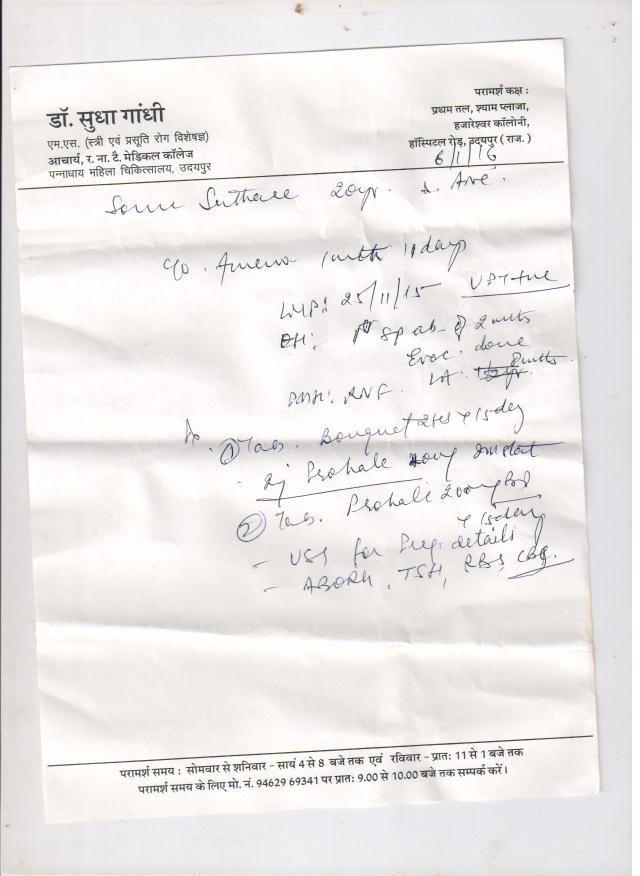 डॉ. सुधा गांधी
एम.एस. (स्त्री एवं प्रसूति रोग विशेषज्ञ)
आचार्य, र. ना. टै. मेडिकल कॉलेज
पन्नाधाय महिला चिकित्सालय, उदयपुर
परामर्श कक्ष :
प्रथम तल, श्याम प्लाजा,
हजारेश्वर कॉलोनी,
हॉस्पिटल रोड़, उदयपुर ( राज. )
6/1/16
20yr.
c/o. Ameno 1 mth 11 days
LMP: 25/11/15 UPT +ve
OH: 1 sp ab. of 2 mths
Evac. done
LA: 8 mths
① Tab. Bouquet x 15 day
② Tab. 200mg BD
x 15 days
- USG for Preg. details
- ABORH, TSH, RBS, CBC.
परामर्श समय : सोमवार से शनिवार - सायं 4 से 8 बजे तक एवं रविवार - प्रातः 11 से 1 बजे तक
परामर्श समय के लिए मो. नं. 94629 69341 पर प्रातः 9.00 से 10.00 बजे तक सम्पर्क करें।